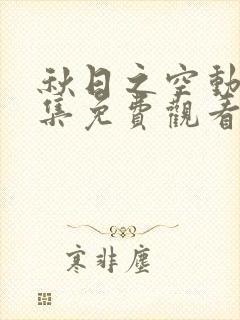 秋日之空動
集免費觀看
寒非塵